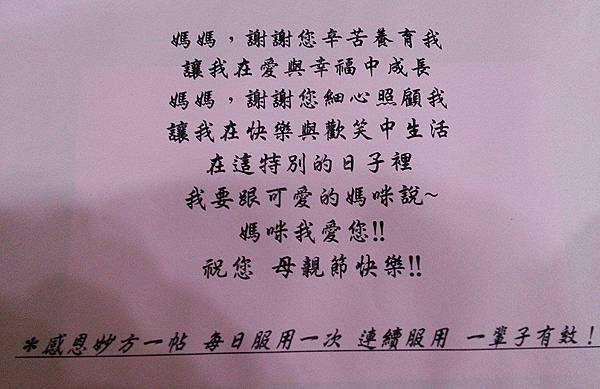 媽媽，謝謝您辛苦養育我
讓我在愛與幸福中成長
媽媽，謝謝您細心照顧我
讓我在快樂與歡笑中生活
在這特別的日子裡
我要跟可愛的媽咪說~
媽咪我愛您!!
祝您 母親節快樂!!
*感恩妙方一帖 每日服用一次 連續服用 一輩子有效！